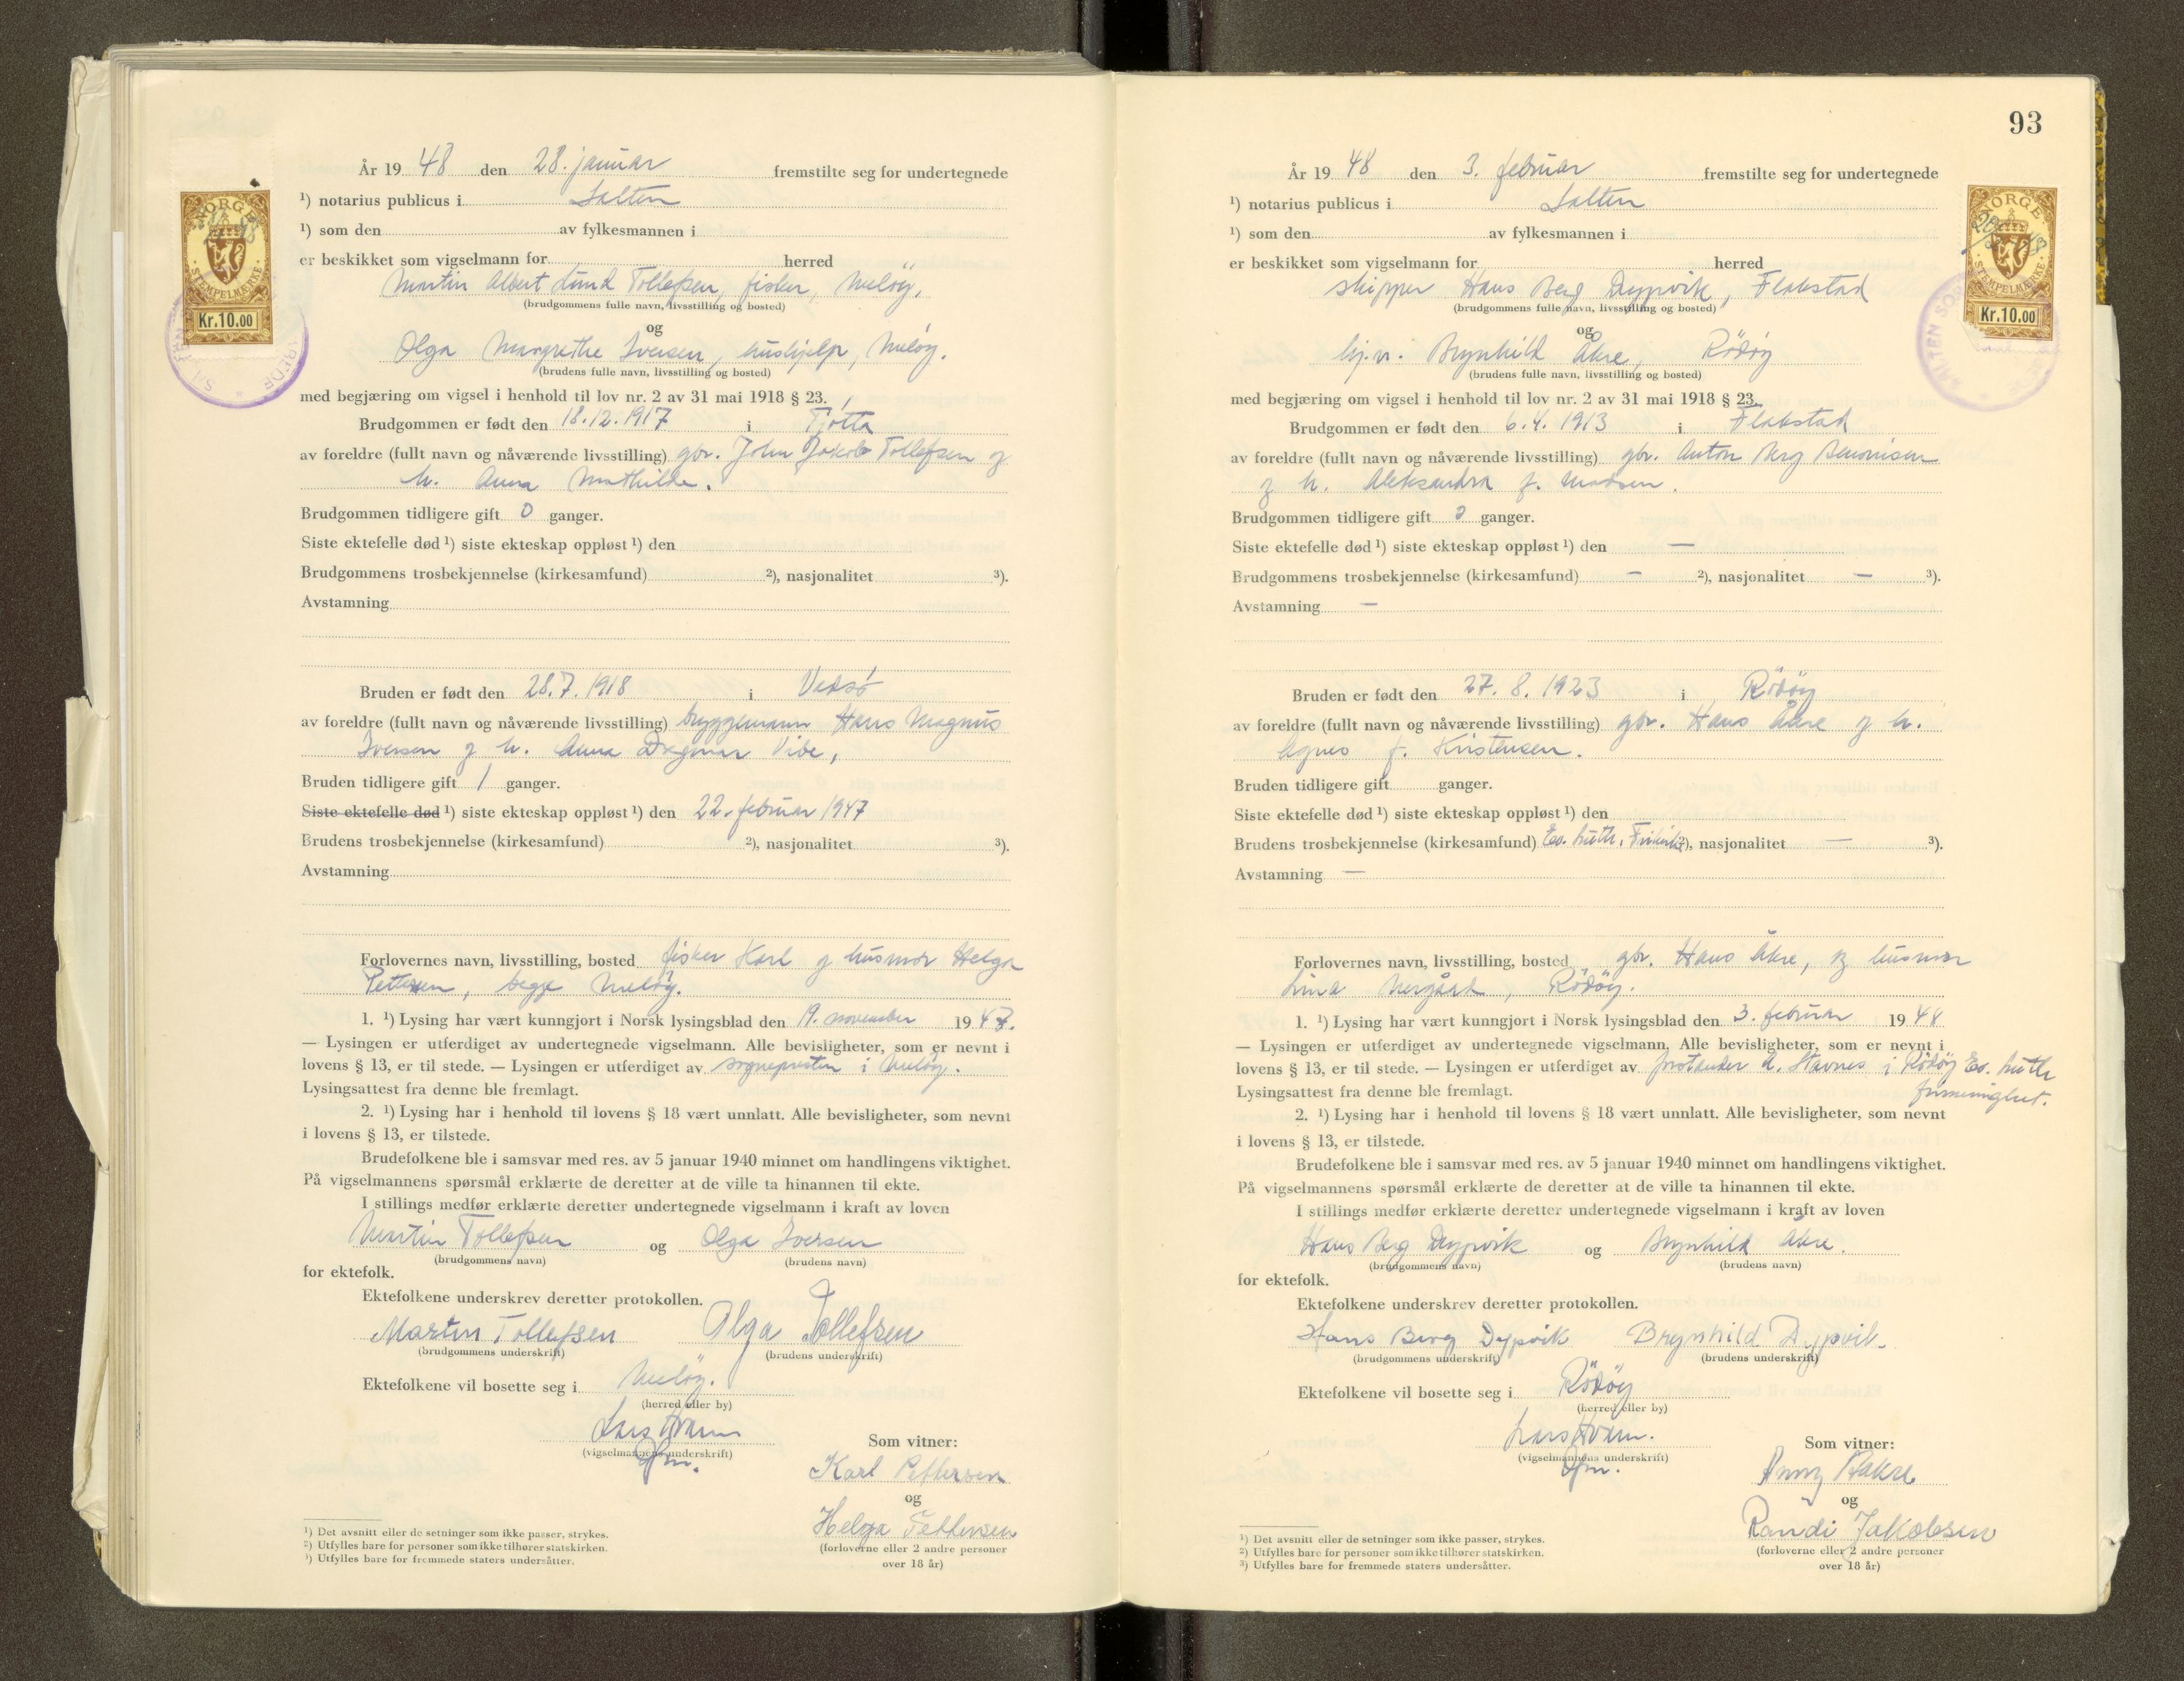 År 19 48 den 28. januar fremstilte seg for undertegnede
¹) notarius publicus i Salten
¹) som den av fylkesmannen i
er beskikket som vigselmann for herred
Martin Albert Lund Tollefsen, fisker, Meløy,
(brudgommens fulle navn, livsstilling og bosted)
og
Olga Margrethe Iversen, hushjelp, Meløy.
(brudens fulle navn, livsstilling og bosted)
med begjæring om vigsel i henhold til lov nr. 2 av 31 mai 1918 § 23.
Brudgommen er født den 18.12.1917 i Tjøtta
av foreldre (fullt navn og nåværende livsstilling) gbr. John Jakob Tollefsen og
h. Anna Mathilde.
Brudgommen tidligere gift 0 ganger.
Siste ektefelle død ¹) siste ekteskap oppløst ¹) den
Brudgommens trosbekjennelse (kirkesamfund) ²), nasjonalitet ³).
Avstamning
Bruden er født den 28.7.1918 i Vadsø
av foreldre (fullt navn og nåværende livsstilling) bryggemann Hans Magnus
Iversen og h. Anna Dagmar Vibe,
Bruden tidligere gift 1 ganger.
Siste ektefelle død ¹) siste ekteskap oppløst ¹) den 22. februar 1947
Brudens trosbekjennelse (kirkesamfund) ²), nasjonalitet ³).
Avstamning
Forlovernes navn, livsstilling, bosted fisker Karl og husmor Helga
Pettersen, begge Meløy.
1. ¹) Lysing har vært kunngjort i Norsk lysingsblad den 19. november 19 47.
— Lysingen er utferdiget av undertegnede vigselmann. Alle bevisligheter, som er nevnt i
lovens § 13, er til stede. — Lysingen er utferdiget av sogneprester i Meløy.
Lysingsattest fra denne ble fremlagt.
2. ¹) Lysing har i henhold til lovens § 18 vært unnlatt. Alle bevisligheter, som nevnt
i lovens § 13, er tilstede.
Brudefolkene ble i samsvar med res. av 5 januar 1940 minnet om handlingens viktighet.
På vigselmannens spørsmål erklærte de deretter at de ville ta hinannen til ekte.
I stillings medfør erklærte deretter undertegnede vigselmann i kraft av loven
Martin Tollefsen og Olga Iversen
(brudgommens navn) (brudens navn)
for ektefolk.
Ektefolkene underskrev deretter protokollen.
Martin Tollefsen Olga Tollefsen
(brudgommens underskrift) (brudens underskrift)
Ektefolkene vil bosette seg i Meløy.
(herred eller by)
Lars Hvam
(vigselmannens underskrift)
Som vitner:
Karl Pettersen
og
Helga Pettersen
(forloverne eller 2 andre personer
over 18 år)
¹) Det avsnitt eller de setninger som ikke passer, strykes.
²) Utfylles bare for personer som ikke tilhører statskirken.
³) Utfylles bare for fremmede staters undersåtter.
NORGE
STEMPELMERKE
Kr.10.00
93
År 19 48 den 3. februar fremstilte seg for undertegnede
¹) notarius publicus i Salten
¹) som den av fylkesmannen i
er beskikket som vigselmann for herred
skipper Hans Berg Dypvik, Flakstad
(brudgommens fulle navn, livsstilling og bosted)
og
hj.v. Brynhild Åkre, Rødøy
(brudens fulle navn, livsstilling og bosted)
med begjæring om vigsel i henhold til lov nr. 2 av 31 mai 1918 § 23.
Brudgommen er født den 6.4.1913 i Flakstad
av foreldre (fullt navn og nåværende livsstilling) gbr. Anton Berg Benonisen
og h. Aleksandra f. Madsen.
Brudgommen tidligere gift 0 ganger.
Siste ektefelle død ¹) siste ekteskap oppløst ¹) den —
Brudgommens trosbekjennelse (kirkesamfund) — ²), nasjonalitet — ³).
Avstamning —
Bruden er født den 27.8.1923 i Rødøy
av foreldre (fullt navn og nåværende livsstilling) gbr. Hans Åkre og h.
Agnes f. Kristensen.
Bruden tidligere gift ganger.
Siste ektefelle død ¹) siste ekteskap oppløst ¹) den
Brudens trosbekjennelse (kirkesamfund) Ev. luth. Frikirke ²), nasjonalitet — ³).
Avstamning —
Forlovernes navn, livsstilling, bosted gbr. Hans Åkre, og husmor
Lina Nergård, Rødøy.
1. ¹) Lysing har vært kunngjort i Norsk lysingsblad den 3. februar 19 48
— Lysingen er utferdiget av undertegnede vigselmann. Alle bevisligheter, som er nevnt i
lovens § 13, er til stede. — Lysingen er utferdiget av forstander Stavnes i Rødøy Ev. luth
frimenighet.
Lysingsattest fra denne ble fremlagt.
2. ¹) Lysing har i henhold til lovens § 18 vært unnlatt. Alle bevisligheter, som nevnt
i lovens § 13, er tilstede.
Brudefolkene ble i samsvar med res. av 5 januar 1940 minnet om handlingens viktighet.
På vigselmannens spørsmål erklærte de deretter at de ville ta hinannen til ekte.
I stillings medfør erklærte deretter undertegnede vigselmann i kraft av loven
Hans Berg Dypvik og Brynhild Åkre.
(brudgommens navn) (brudens navn)
for ektefolk.
Ektefolkene underskrev deretter protokollen.
Hans Berg Dypvik Brynhild Dypvik.
(brudgommens underskrift) (brudens underskrift)
Ektefolkene vil bosette seg i Rødøy
(herred eller by)
Lars Hvam.
(vigselmannens underskrift)
Som vitner:
og
Randi Jakobsen
(forloverne eller 2 andre personer
over 18 år)
¹) Det avsnitt eller de setninger som ikke passer, strykes.
²) Utfylles bare for personer som ikke tilhører statskirken.
³) Utfylles bare for fremmede staters undersåtter.
NORGE
STEMPELMERKE
Kr.10.00